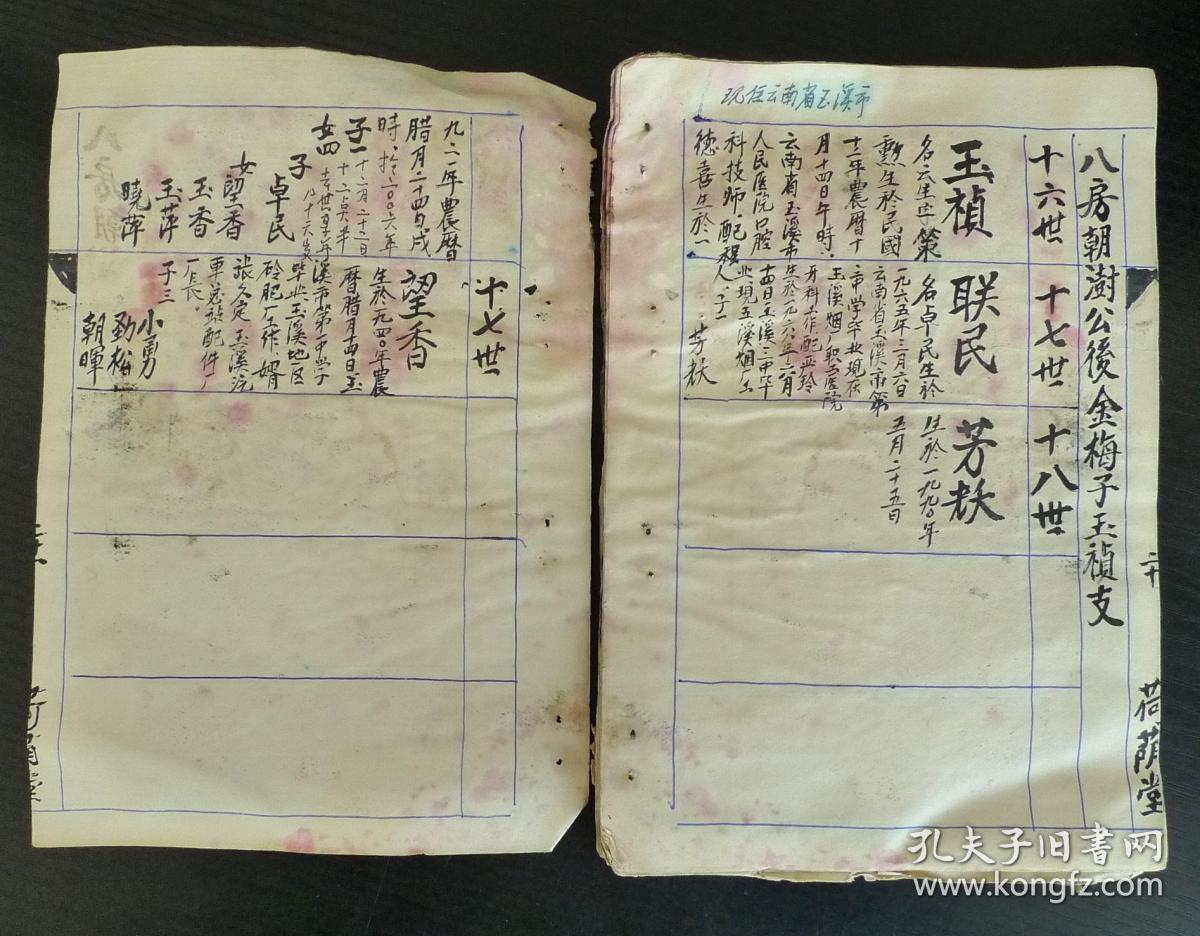 现住云南省玉溪市
八房朝澍公後金梅子玉禎支
二十
荷蔭堂
十六世
十七世
十八世
玉禎
名云生字策
勲生於民國
十二年農曆十
月十四日午時
云南省玉溪市
人民医院口腔
科技師．配楊
德喜生於一
联民
名卓民生於
一九六五年三月六日
云南省玉溪市第
二中学卒业现在
玉溪烟厂职工医院
牙科工作配严玲
生於一九六八年六月
十四日玉溪二中卒
业現玉溪烟厂工
人．子一
芳
芳
生於一九九〇年
五月二十五日
九二一年農曆
腊月二十四日戌
時．於二〇〇六年
十二月二十二日
子一
女四
去世享年
八十六岁
子
卓民
女
望香
玉香
玉萍
曉萍
十七世
望香
生於一九四〇年農
曆腊月十四日玉
溪市第一中学
毕业玉溪地区
砱肥厂工作．婿
張久定玉溪汽
車总站配件厂
厂長．
子三
小勇
劲松
朝暉
孔夫子旧书网
www.kongfz.com